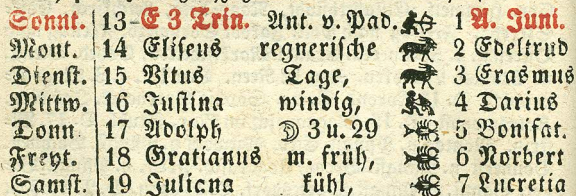 Sonnt. 13 E 3 Trin. Ant. v. Pad. 1 A. Juni.
Mont. 14 Eliseus regnerische 2 Edeltrud
Dienst. 15 Vitus Tage, 3 Erasmus
Mittw. 16 Justina windig, 4 Darius
Donn 17 Adolph ☽ 3 u. 29 5 Bonifat.
Freyt. 18 Gratianus m. früh, 6 Norbert
Samst. 19 Juliana kühl, 7 Lucretia